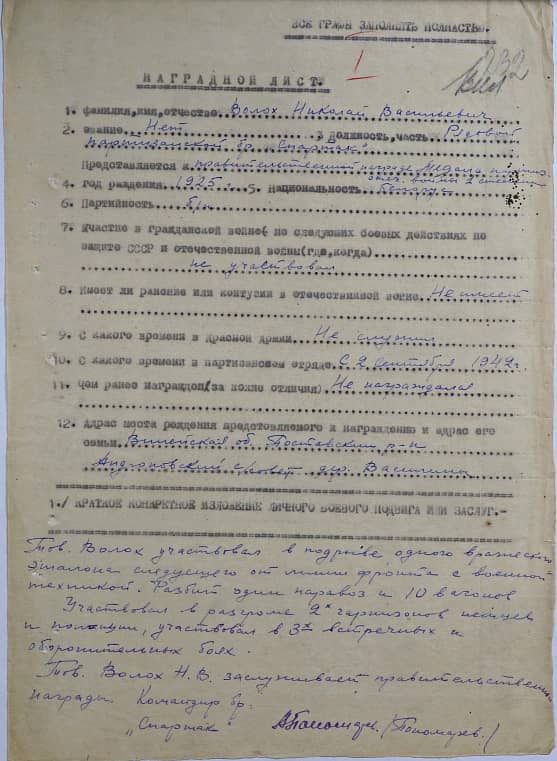 ВСЕ ГРАФЫ ЗАПОЛНЯТЬ ПОЛНОСТЬЮ.
1
НАГРАДНОЙ ЛИСТ.
1. фамилия, имя, отчество Волох Николай Васильевич
2. звание Нет 3 Должность, часть Рядовой
партизанской бр. "Спартак"
Представляется к правительственной награде Медаль
4. Год рождения 1925 г. 5. Национальность белорус
6. Партийность б/п
7. Участие в гражданской войне( но следующих боевых действиях по
защите СССР и отечественной войны(где, когда)
не участвовал
8. Имеет ли ранение или контузии в отечественной войне. Не имеет
9. С какого времени в Красной Армии. Не служил
10. С какого времени в партизанском отряде. С 2 сентября 1942 г.
11. Чем ранее награжден(за какие отличия) Не награждался
12. Адрес места рождения представляемого к награждению и адрес его
семьи. Вилейская об. Поставский р-н
совет дер. Василины
1./ КРАТКОЕ КОНКРЕТНОЕ ИЗЛОЖЕНИЕ ЛИЧНОГО БОЕВОГО ПОДВИГА ИЛИ ЗАСЛУГ.-
Тов. Волох участвовал в подрыве одного вражеского
эшалона следуещего от линии фронта с военной
техникой. Разбит один паравоз и 10 вагонов
Участвовал в разгроме 2х гарнизонов немцев
и полиции, участвовал в 3х встречных и
оборонительных боях.
Тов. Волох Н.В. заслуживает правительственн
награды. Командир бр.
"Спартак" (Пономарев.)